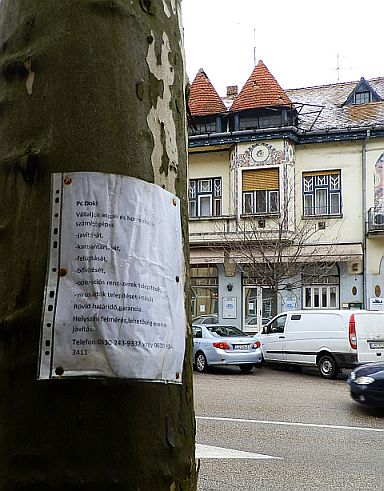 Pc Doki
Vállaljuk asztali és hordozható
számítógépek
-javítását,
-karbantartását,
-felújítását,
-bővítését,
-operációs rendszerek telepítését,
-vírus írtók telepítését-írtását
Rövid határidő,garancia.
Helyszíni felmérés,lehetőség esetén
javítás.
Telefon:0630-243-9337 vagy 0620
3411